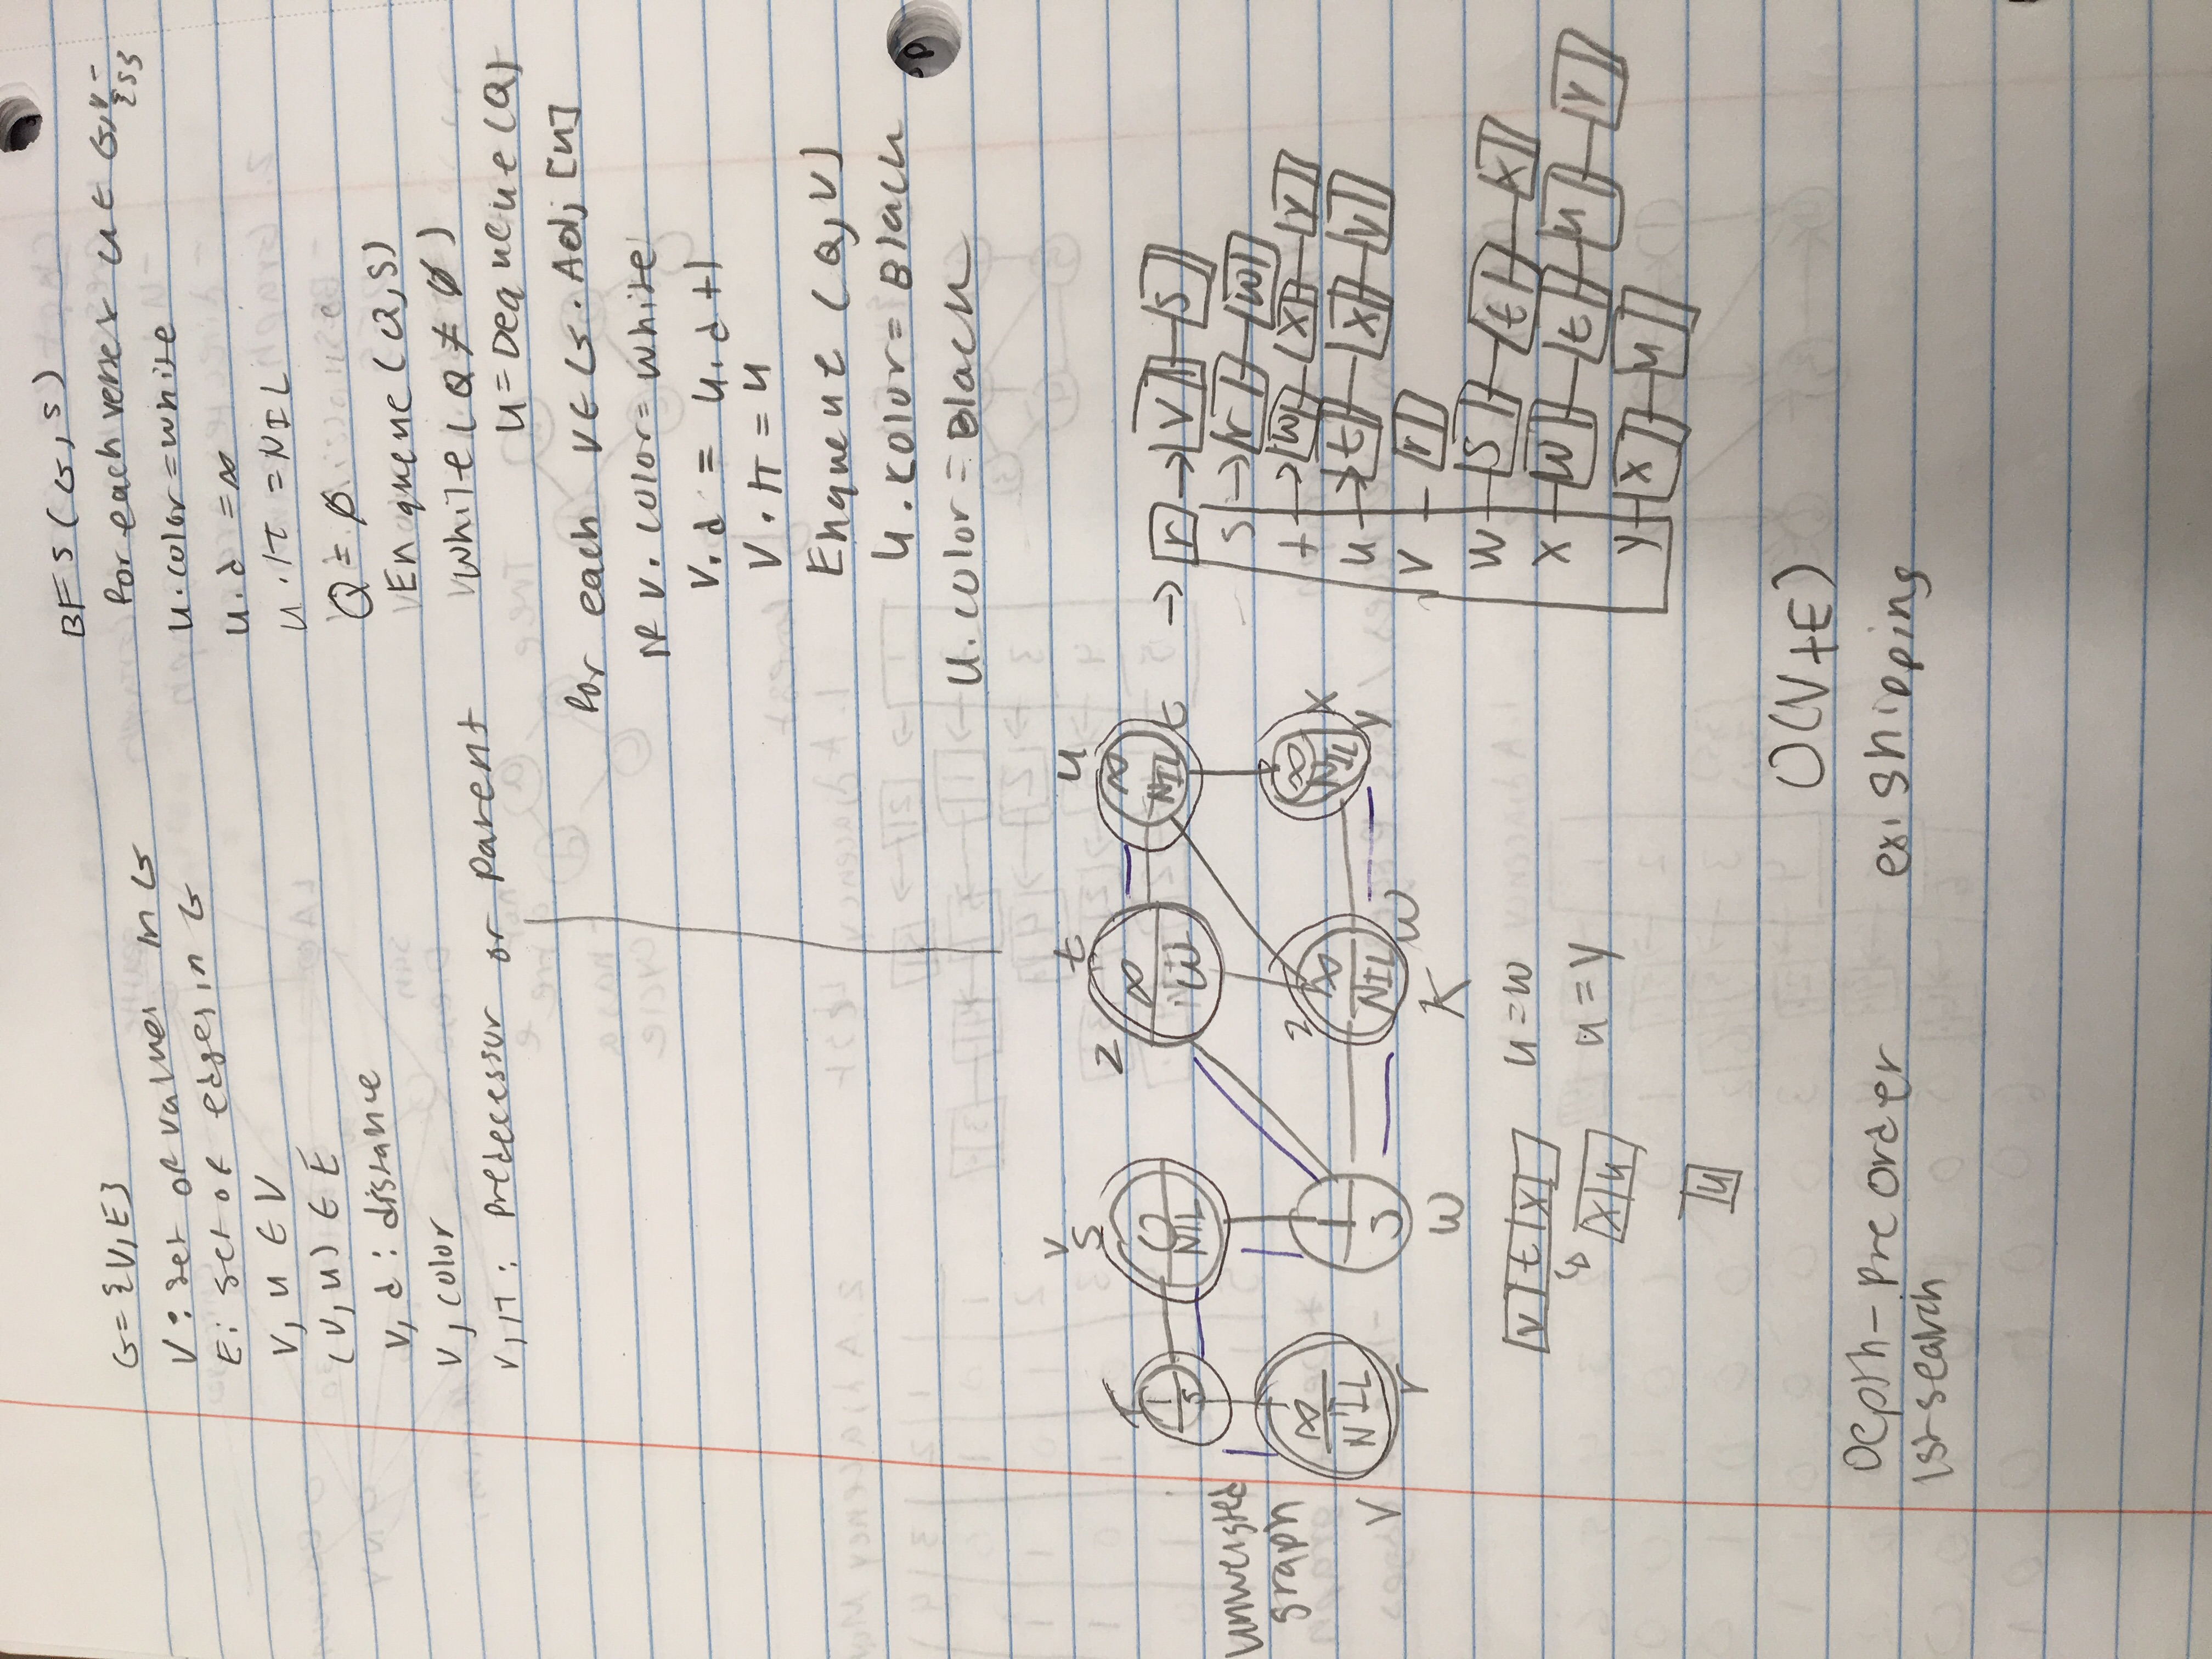 G = {V, E}
V : set of values in G
E : set of edges in G
V, u ∈ V
(V, u) ∈ E
V, d : distance
V, color
V, π : predecessor or parent
BFS (G, S)
for each vertex u ∈ G,V - {S}
u.color = white
u.d = ∞
u.π = NIL
Q = ∅
Enqueue (Q, S)
While (Q ≠ ∅)
u = Dequeue (Q)
for each V ∈ G. Adj [u]
if V. color = white
V. d = u. d + 1
V . π = u
Enqueue (Q, V)
u. color = Black
u. color = Black
Unweighted graph
r
1
S
V
S
0
NIL
2
t
∞
NIL
W
u
∞
NIL
t
V
∞
NIL
r
S
W
2
∞
NIL
W
K
∞
NIL
X
y
→ r → V S
S → r W
t → W X Y
u → t X Y
V - r
W - S t X
X - W t u Y
Y - X u
V t X u = w
↳ X u u = y
u
O(V+E)
Depth - Pre Order
1st search
ex: shipping